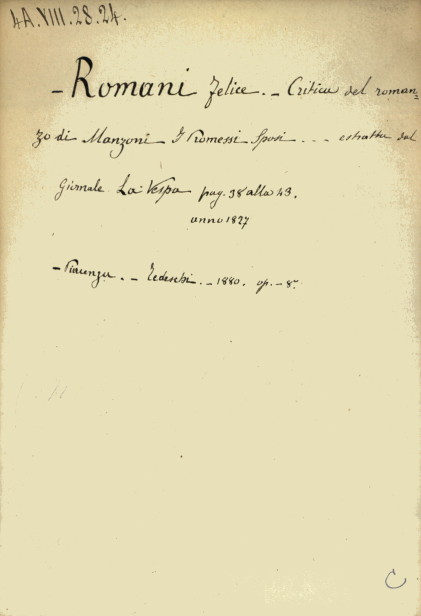 4A.VIII.28.24.
- Romani Felice. - Critica del roman=
zo di Manzoni I Promessi Sposi ... estratta dal
Giornale La Vespa pag. 38 alla 43.
anno 1827
- Piacenza. - Tedeschi. - 1880. op. - 8°
C